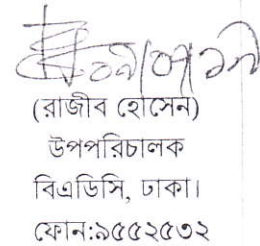 (রাজীব হোসেন)
উপপরিচালক
বিএডিসি, ঢাকা।
ফোন:৯৫৫২৫৩২